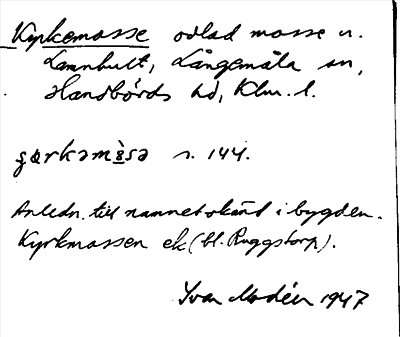 Kyrkemosse odlad mosse n.
Lannhult, Långemåla sn,
Handbörds hd, Klm. l.
s. 144.
Anledn. till namnet okänd i bygden.
Kyrkmossen ek (bl. Ruggstorp).
Ivar Modéer 1947